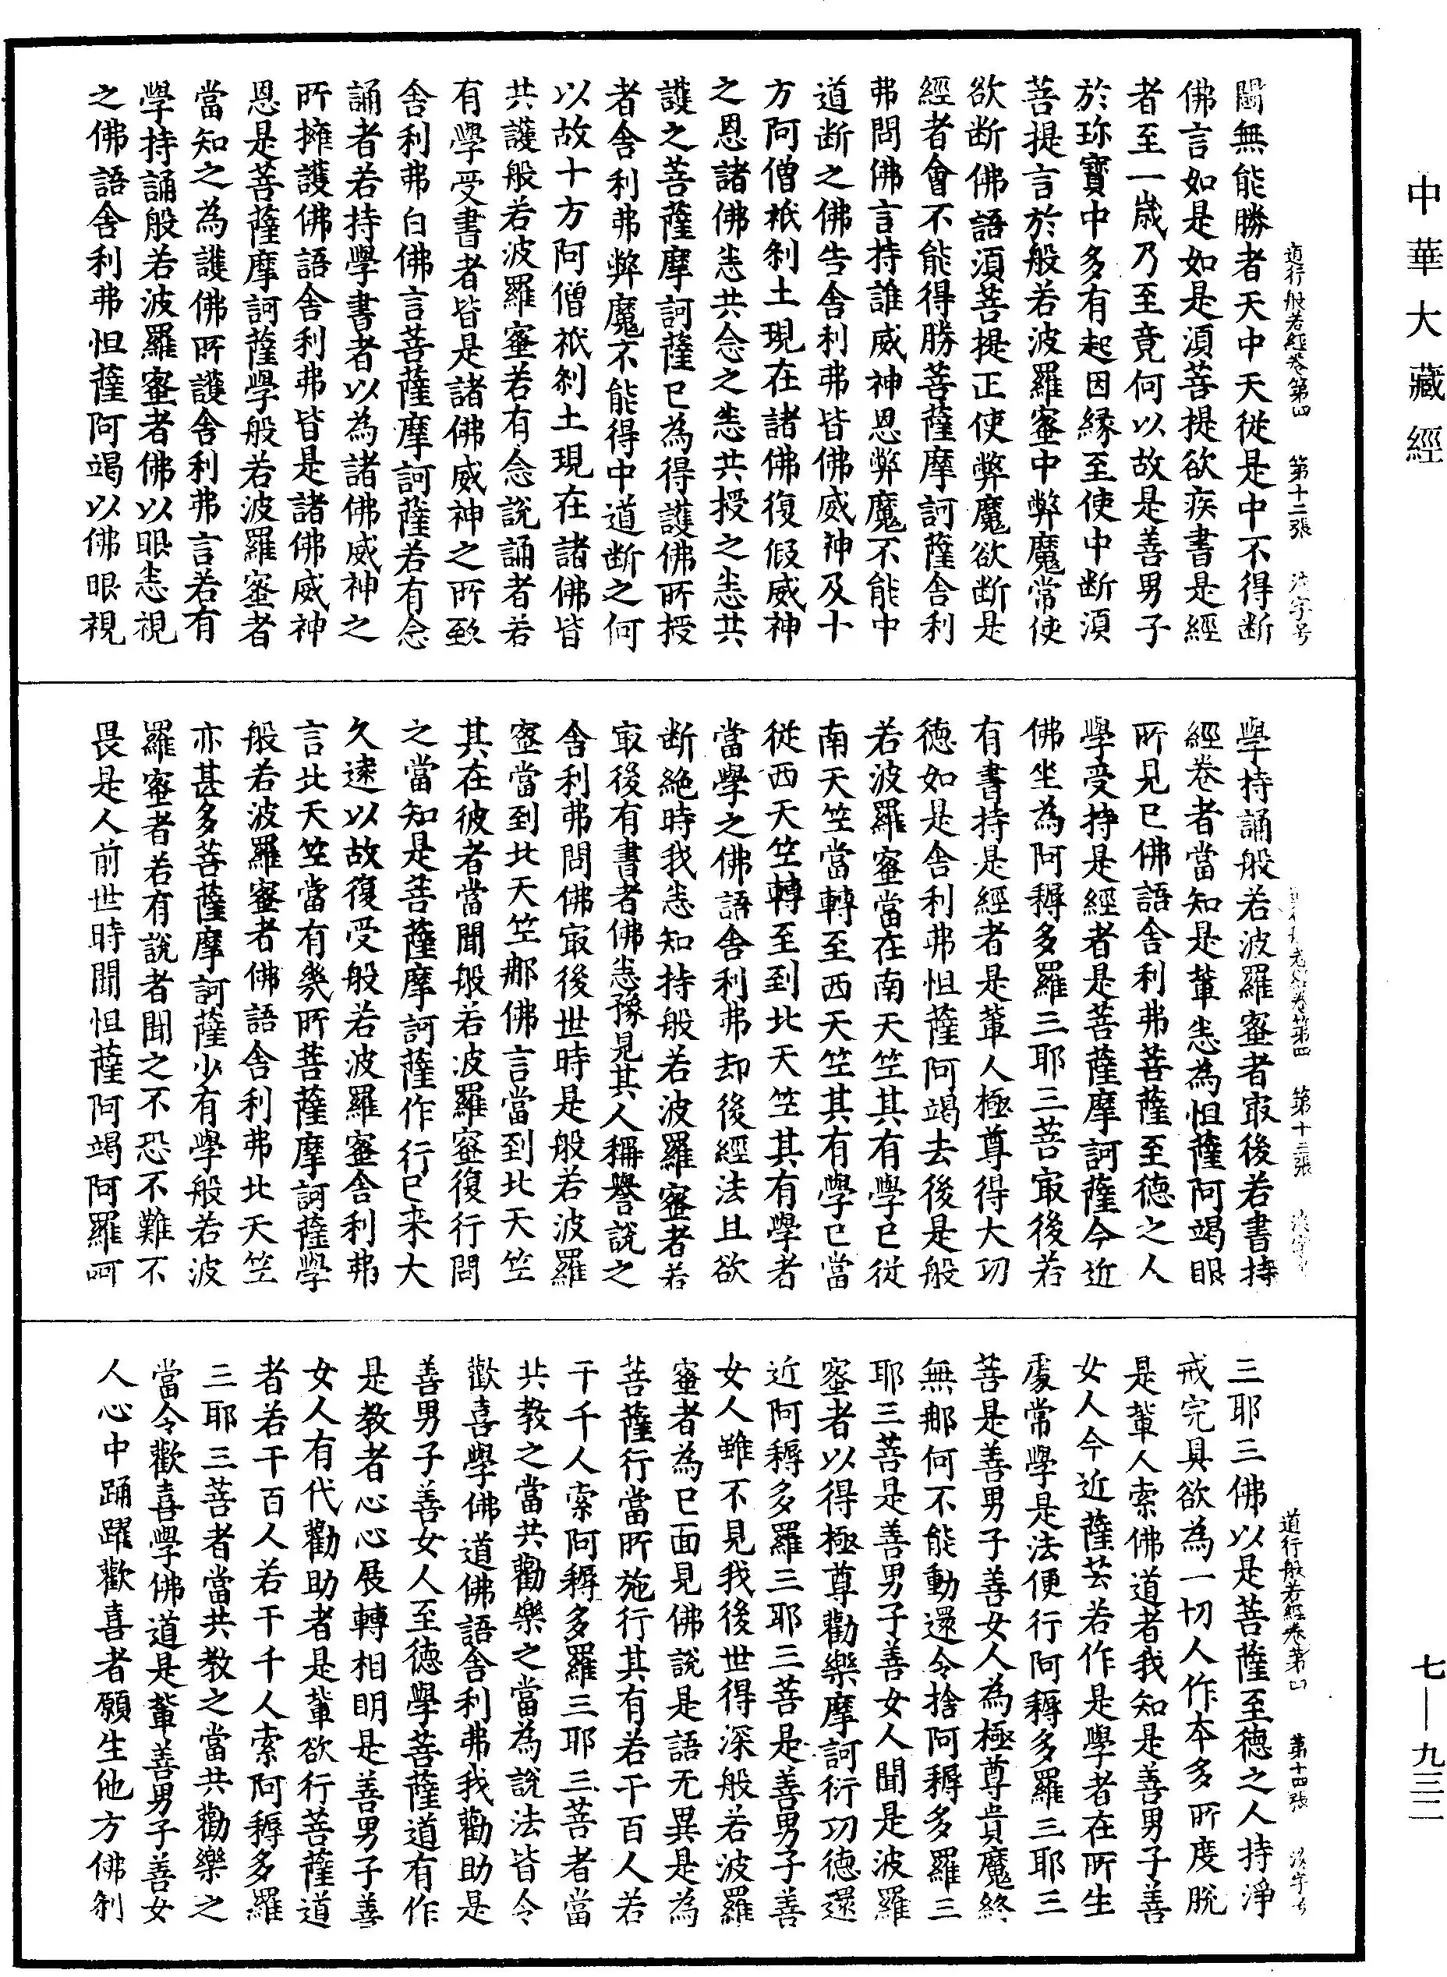 中華大藏經
七—九三二
道行般若經卷第四 第十二張 字号
闘無能勝者天中天從是中不得斷
佛言如是如是須菩提欲疾書是經
者至一歲乃至竟何以故是善男子
於珎寶中多有起因緣至使中斷須
菩提言於般若波羅蜜中弊魔常使
欲斷佛語須菩提正使弊魔欲斷是
經者會不能得勝菩薩摩訶薩舍利
弗問佛言持誰威神恩弊魔不能中
道斷之佛告舍利弗皆佛威神及十
方阿僧祇剎土現在諸佛復假威神
之恩諸佛悉共念之悉共授之悉共
護之菩薩摩訶薩已為得護佛所授
者舍利弗弊魔不能得中道斷之何
以故十方阿僧祇剎土現在諸佛皆
共護般若波羅蜜若有念說誦者若
有學受書者皆是諸佛威神之所致
舍利弗白佛言菩薩摩訶薩若有念
誦者若持學書者以為諸佛威神之
所擁護佛語舍利弗皆是諸佛威神
恩是菩薩摩訶薩學般若波羅蜜者
當知之為護佛所護舍利弗言若有
學持誦般若波羅蜜者佛以眼悉視
之佛語舍利弗怛薩阿竭以佛眼視
卷第四 第十三張
學持誦般若波羅蜜者冣後若書持
經卷者當知是輩悉為怛薩阿竭眼
所見已佛語舍利弗菩薩至德之人
學受持是經者是菩薩摩訶薩今近
佛坐為阿耨多羅三耶三菩冣後若
有書持是經者是輩人極尊得大功
德如是舍利弗怛薩阿竭去後是般
若波羅蜜當在南天竺其有學已從
南天竺當轉至西天竺其有學已當
從西天竺轉至到北天竺其有學者
當學之佛語舍利弗却後經法且欲
斷絕時我悉知持般若波羅蜜者若
冣後有書者佛悉豫見其人稱譽說之
舍利弗問佛冣後世時是般若波羅
蜜當到北天竺那佛言當到北天竺
其在彼者當聞般若波羅蜜復行問
之當知是菩薩摩訶薩作行已来大
久遠以故復受般若波羅蜜舍利弗
言北天竺當有幾所菩薩摩訶薩學
般若波羅蜜者佛語舍利弗北天竺
亦甚多菩薩摩訶薩少有學般若波
羅蜜者若有說者聞之不恐不難不
畏是人前世時聞怛薩阿竭阿羅呵
道行般若經卷第四 第十四張 字号
三耶三佛以是菩薩至德之人持淨
戒完具欲為一切人作本多所度脫
是輩人索佛道者我知是善男子善
女人今近薩芸若作是學者在所生
處常學是法便行阿耨多羅三耶三
菩是善男子善女人為極尊貴魔終
無那何不能動還令捨阿耨多羅三
耶三菩是善男子善女人聞是波羅
蜜者以得極尊勸樂摩訶衍功德還
近阿耨多羅三耶三菩是善男子善
女人雖不見我後世得深般若波羅
蜜者為已面見佛說是語无異是為
菩薩行當所施行其有若干百人若
干千人索阿耨多羅三耶三菩者當
共教之當共勸樂之當為說法皆令
歡喜學佛道佛語舍利弗我勸助是
善男子善女人至德學菩薩道有作
是教者心心展轉相明是善男子善
女人有代勸助者是輩欲行菩薩道
者若干百人若干千人索阿耨多羅
三耶三菩者當共教之當共勸樂之
當令歡喜學佛道是輩善男子善女
人心中踊躍歡喜者願生他方佛剎